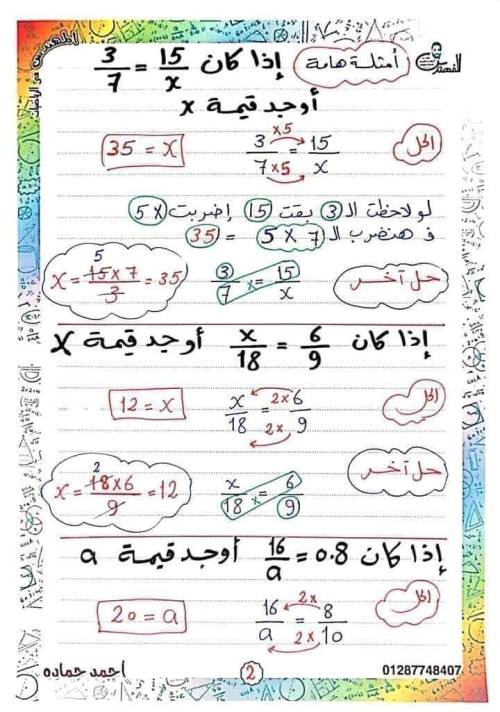 أمثلة هامة
إذا كان 3/7 = 15/x
أوجد قيمة x
الحل
3/7 = 15/x
x5
x5
35 = x
لو لاحظت الـ 3 بقت 15 إضربت 5x
فـ هنضرب الـ 7 x 5 = 35
حل آخر
3/7 x= 15/x
5
x = 15x7/3 = 35
إذا كان x/18 = 6/9 أوجد قيمة x
الحل
x/18 = 6/9
2x
2x
12 = x
حل آخر
x/18 x= 6/9
2
x = 18x6/9 = 12
إذا كان 16/a = 0.8 أوجد قيمة a
الحل
16/a = 8/10
2x
2x
20 = a
احمد حماده
2
01287748407